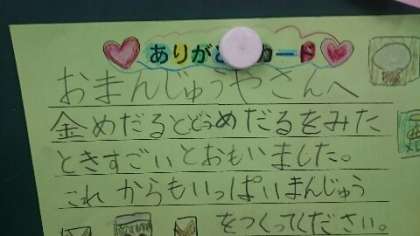 ありがとうカード
おまんじゅうやさんへ
金めだるとどうめだるをみた
ときすごいとおもいました。
これからもいっぱいまんじゅう
をつくってください。